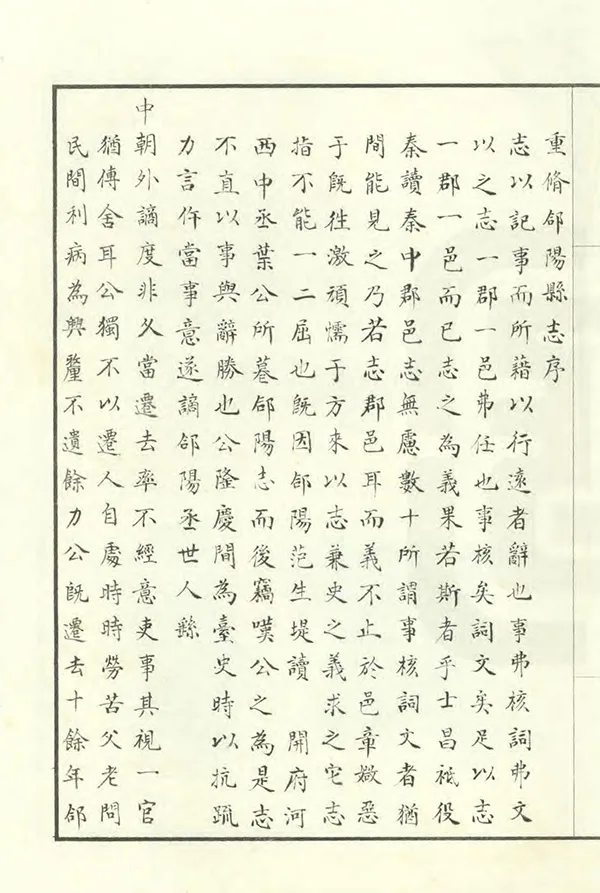 重脩郃陽縣志序
志以記事而所藉以行遠者辭也事弗核詞弗文
以之志一郡一邑弗任也事核矣詞文矣足以志
一郡一邑而已志之為義果若斯者乎士昌祗役
秦讀秦中郡邑志無慮數十所謂事核詞文者猶
間能見之乃若志郡邑耳而義不止於邑章媺惡
于旣徃激頑懦于方來以志兼史之義求之它志
指不能一二屈也旣因郃陽范生堤讀 開府河
西中丞葉公所纂郃陽志而後竊嘆公之為是志
不直以事與辭勝也公隆慶間為臺史時以抗疏
力言仵當事意遂謫郃陽丞世人繇
中朝外謫度非乆當遷去率不經意吏事其視一官
猶傳舍耳公獨不以遷人自處時時勞苦父老問
民間利病為興釐不遺餘力公旣遷去十餘年郃